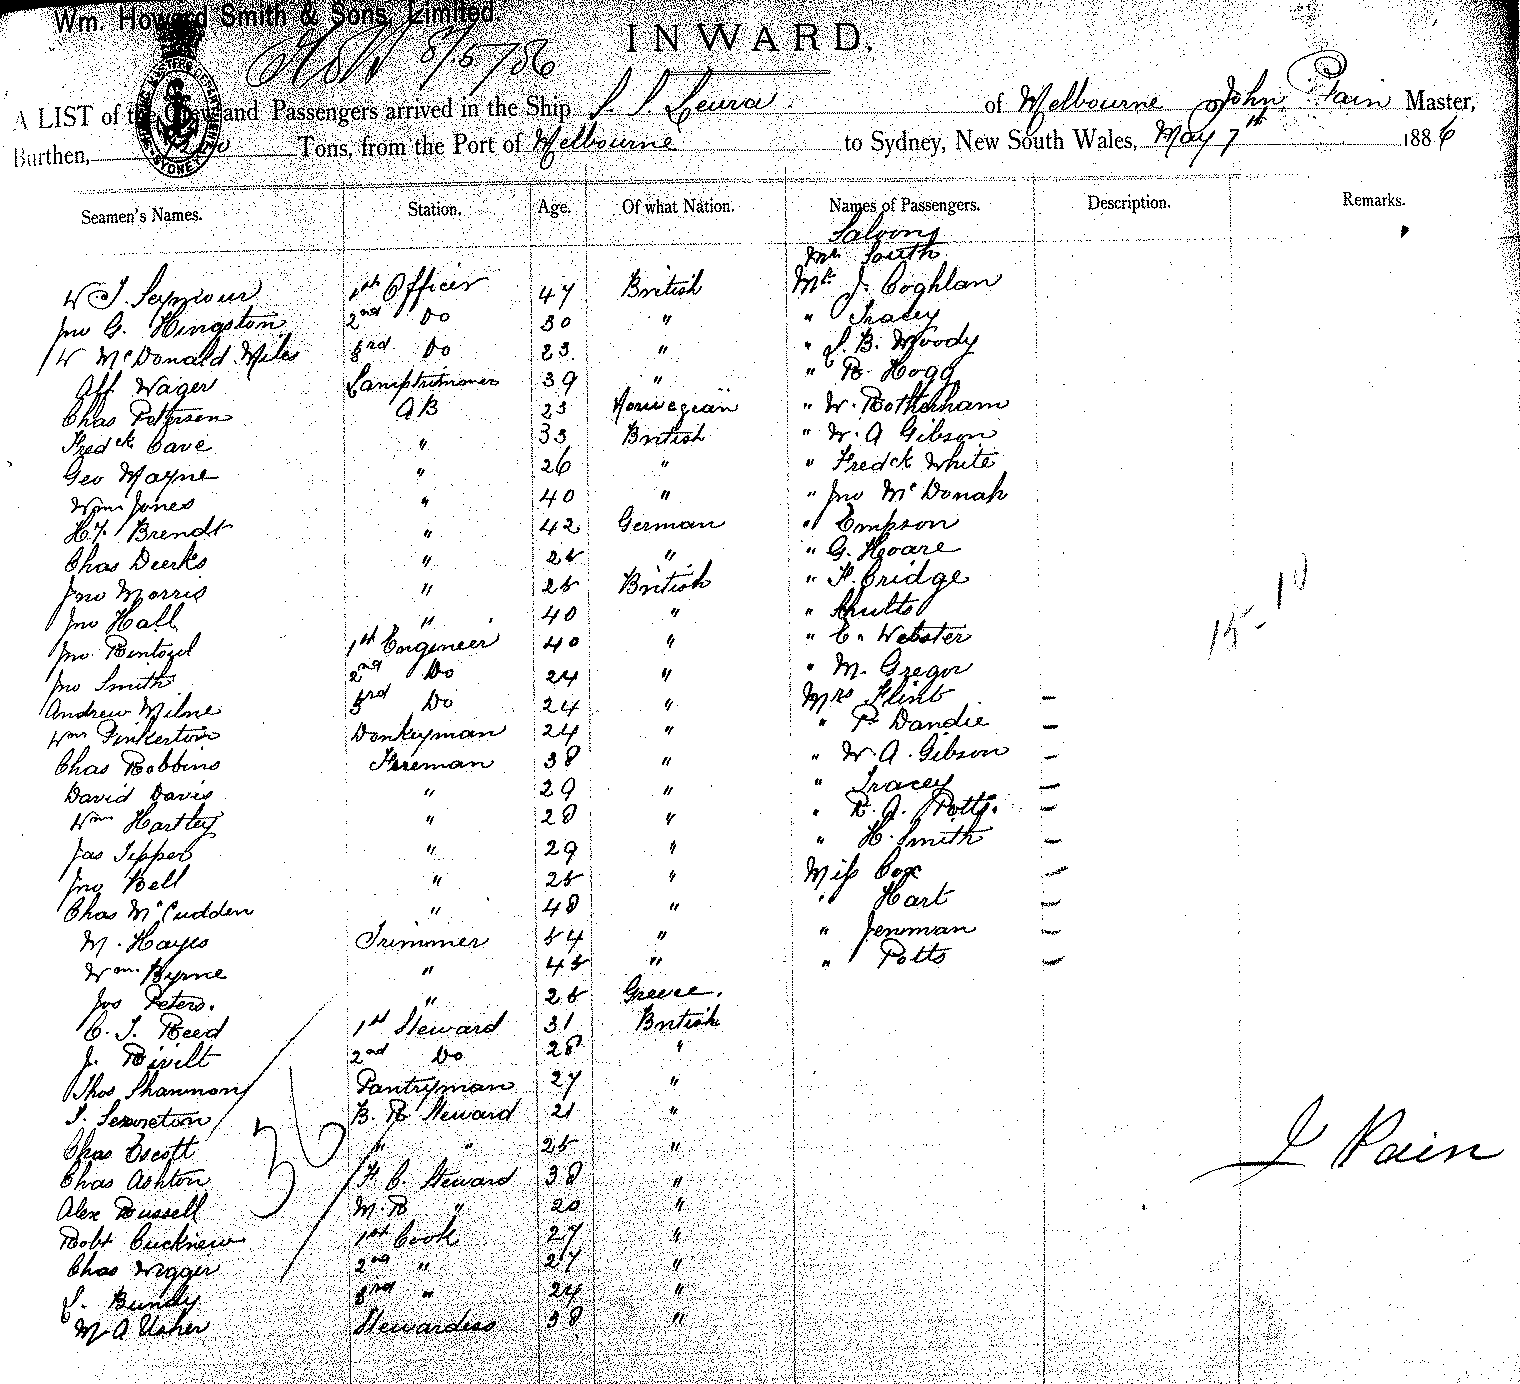 Wm. Howard Smith & Sons, Limited
INWARD.
8/5/86
A LIST of the Crew and Passengers arrived in the Ship S. S. Leura of Melbourne John Pain Master,
Burthen, Tons, from the Port of Melbourne to Sydney, New South Wales, May 7th 1886
Seamen's Names. Station. Age. Of what Nation. Names of Passengers. Description. Remarks.
Saloon
Mr South
W T. Seymour 1st Officer 47 British Mr J. Coghlan
Jno G. Hingston 2nd Do 30 " " Tracey
W McDonald Miles 3rd Do 23 " " S. B. Moody
Alf. Wager Lamptrimmer 39 " " R. Hogg
Chas Petersen AB 23 Norwegian " W. Rotherham
Fredck Cave " 33 British " W. A Gibson
Geo Mayne " 26 " " Fredck White
Wm Jones " 40 " " Jno McDonah
H. F. Brendt " 42 German " Empson
Chas Dierks " 25 " " G. Hoare
Jno Morris " 25 British " F. Cridge
Jno Hall " 40 " " Shults
Jno Rintoul 1st Engineer 40 " " E. Webster
Jno Smith 2nd Do 24 " " M. Gregor
Andrew Milne 3rd Do 24 " Mrs Flint –
Wm Pinkerton Donkeyman 24 " " P. Dandie –
Chas Robbins Fireman 38 " " W. A. Gibson –
David Davis " 29 " " Tracey –
Wm Hartley " 28 " " R. J. Potts. –
Jas Tipper " 29 " " H. Smith –
Jno Bell " 25 " Miss Cox –
Chas McCudden " 48 " " Hart –
M. Hayes Trimmer 54 " " Jenman –
Wm Byrne " 45 " " Potts –
Jos Peters. " 25 Greece.
C. T. Reed 1st Steward 31 British
J. Rivilt 2nd Do 28 "
Thos Shannon Pantryman 27 "
B. R Steward 21 "
Chas Escott " " 25 "
Chas Ashton F. C. Steward 38 "
Alex Russell M. R " 20 "
Robt Cucknew 1st Cook 27 "
Chas Wigger 2nd " 27 "
S. Bundy 3rd " 24 "
M A Usher Stewardess 38 "
36
15 - 10
J Pain